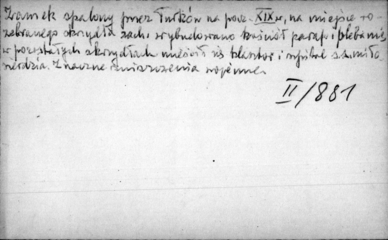 Zamek spalony przez Turków na pocz. XIX w, na miejsce ro-
zebranego skrzydła zach. wybudowano kościół paraf. i plebanię,
w pozostałych skrzydłach mieści się klasztor i szpital s.s. miło-
sierdzia. Znaczne zniszczenia wojenne.
II/881